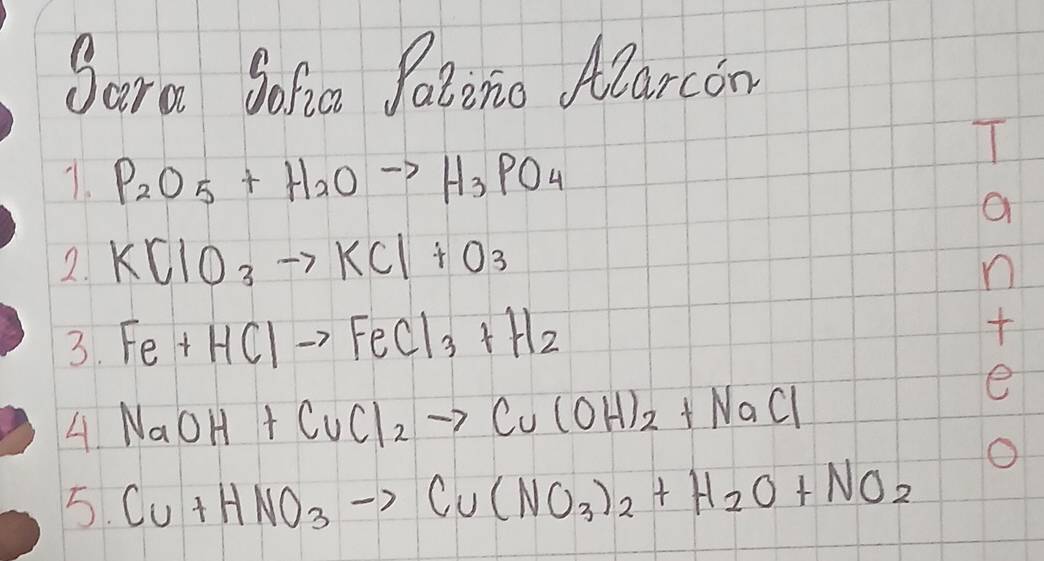 Sara Sofia Patiño Alarcón
1. P₂O₅ + H₂O → H₃PO₄
2. KClO₃ → KCl + O₃
3. Fe + HCl → FeCl₃ + H₂
4. NaOH + CuCl₂ → Cu(OH)₂ + NaCl
5. Cu + HNO₃ → Cu(NO₃)₂ + H₂O + NO₂
Tanteo